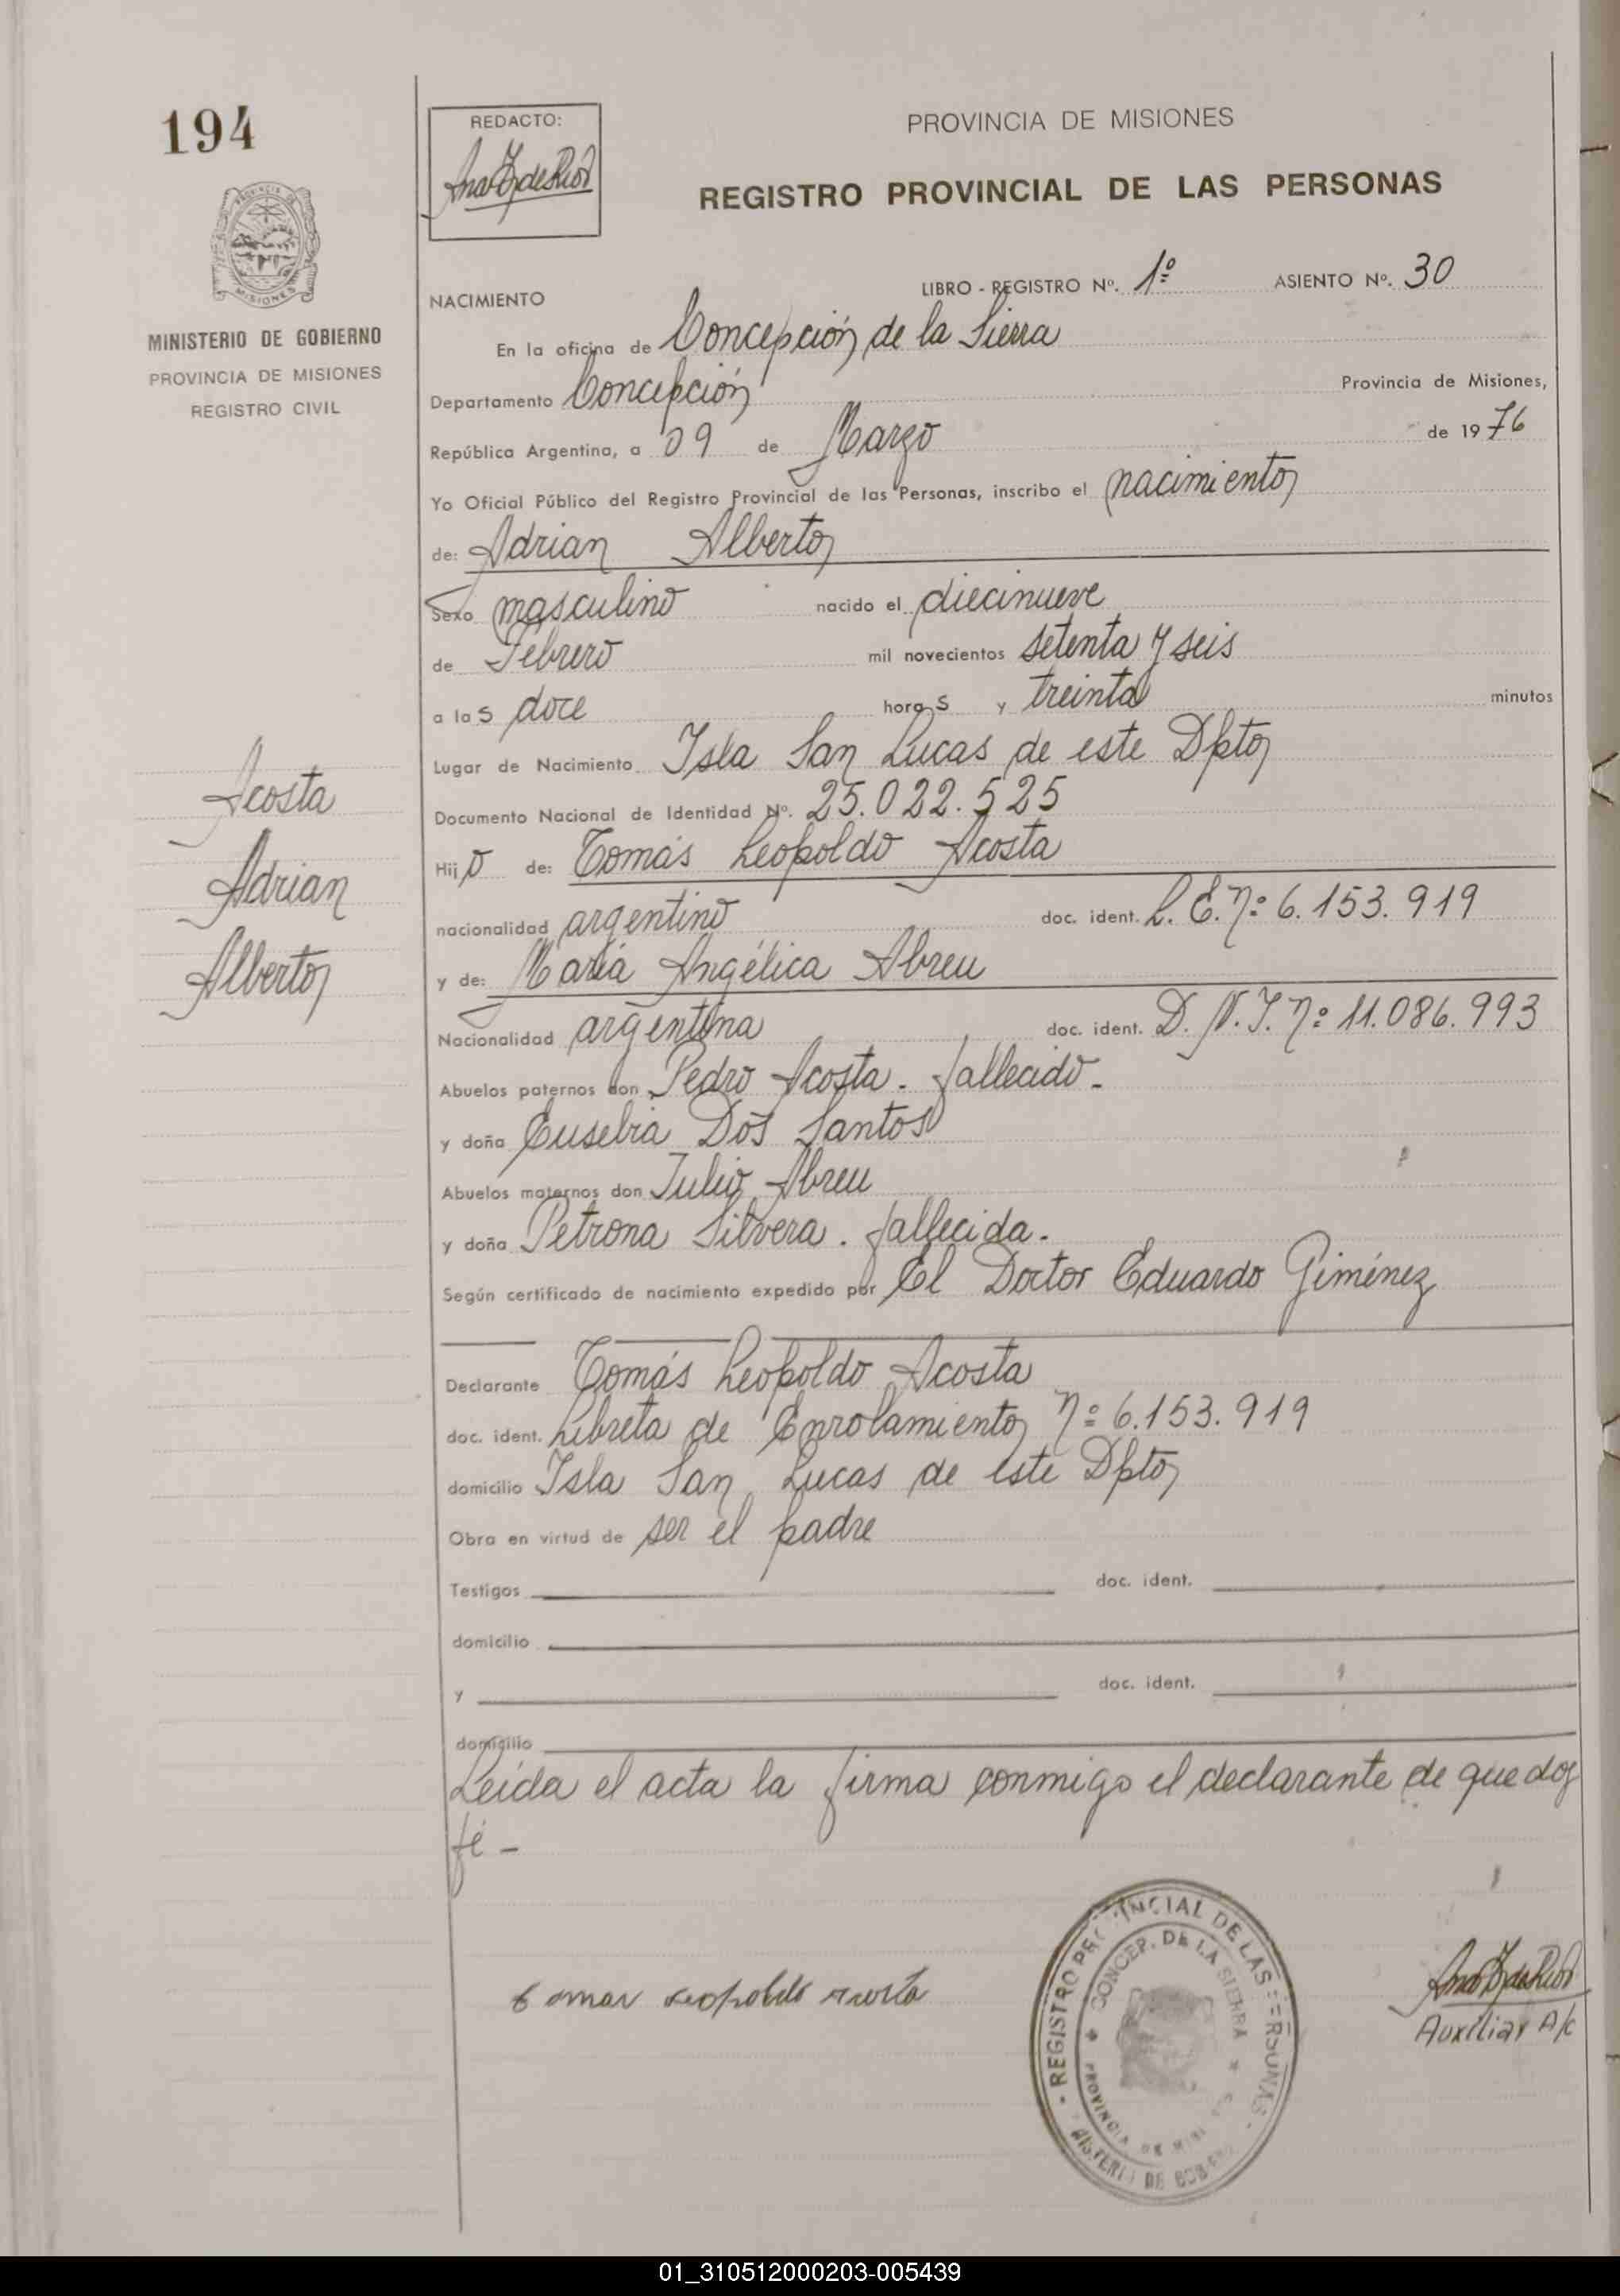 194
REDACTO:
PROVINCIA DE MISIONES
REGISTRO PROVINCIAL DE LAS PERSONAS
MISIONES
MINISTERIO DE GOBIERNO
PROVINCIA DE MISIONES
REGISTRO CIVIL
NACIMIENTO LIBRO - REGISTRO Nº. 1º ASIENTO Nº. 30
En la oficina de Concepción de la Sierra
Departamento Concepción Provincia de Misiones,
República Argentina, a 09 de Marzo de 1976
Yo Oficial Público del Registro Provincial de las Personas, inscribo el nacimiento
de: Adrian Alberto
Sexo masculino nacido el diecinueve
de Febrero mil novecientos setenta y seis
a las doce horas y treinta minutos
Lugar de Nacimiento Isla San Lucas de este Dpto
Documento Nacional de Identidad Nº. 25.022.525
Acosta
Adrian
Alberto
Hijo de: Tomás Leopoldo Acosta
nacionalidad argentino doc. ident. L. E. Nº 6.153.919
y de: María Angélica Abreu
Nacionalidad argentina doc. ident. D. N. I. Nº 11.086.993
Abuelos paternos don Pedro Acosta - fallecido -
y doña Eusebia Dos Santos
Abuelos maternos don Julio Abreu
y doña Petrona Silvera . fallecida .
Según certificado de nacimiento expedido por El Doctor Eduardo Giménez
Declarante Tomás Leopoldo Acosta
doc. ident. Libreta de Enrolamiento Nº 6.153.919
domicilio Isla San Lucas de este Dpto
Obra en virtud de ser el padre
Testigos doc. ident.
domicilio
y doc. ident.
domicilio
Leída el acta la firma conmigo el declarante de que doy
fé -
tomas leopoldo acosta
REGISTRO PROVINCIAL DE LAS PERSONAS
CONCEP. DE LA SIERRA
PROVINCIA DE MISI
Auxiliar A/c
01_310512000203-005439